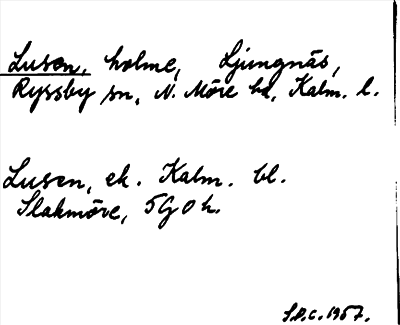 Lusen, holme, Ljungnäs,
Ryssby sn, N. Möre hd, Kalm. l.
Lusen, ek. Kalm. bl.
Slakmöre, 5G0h.
S.P.C. 1957.